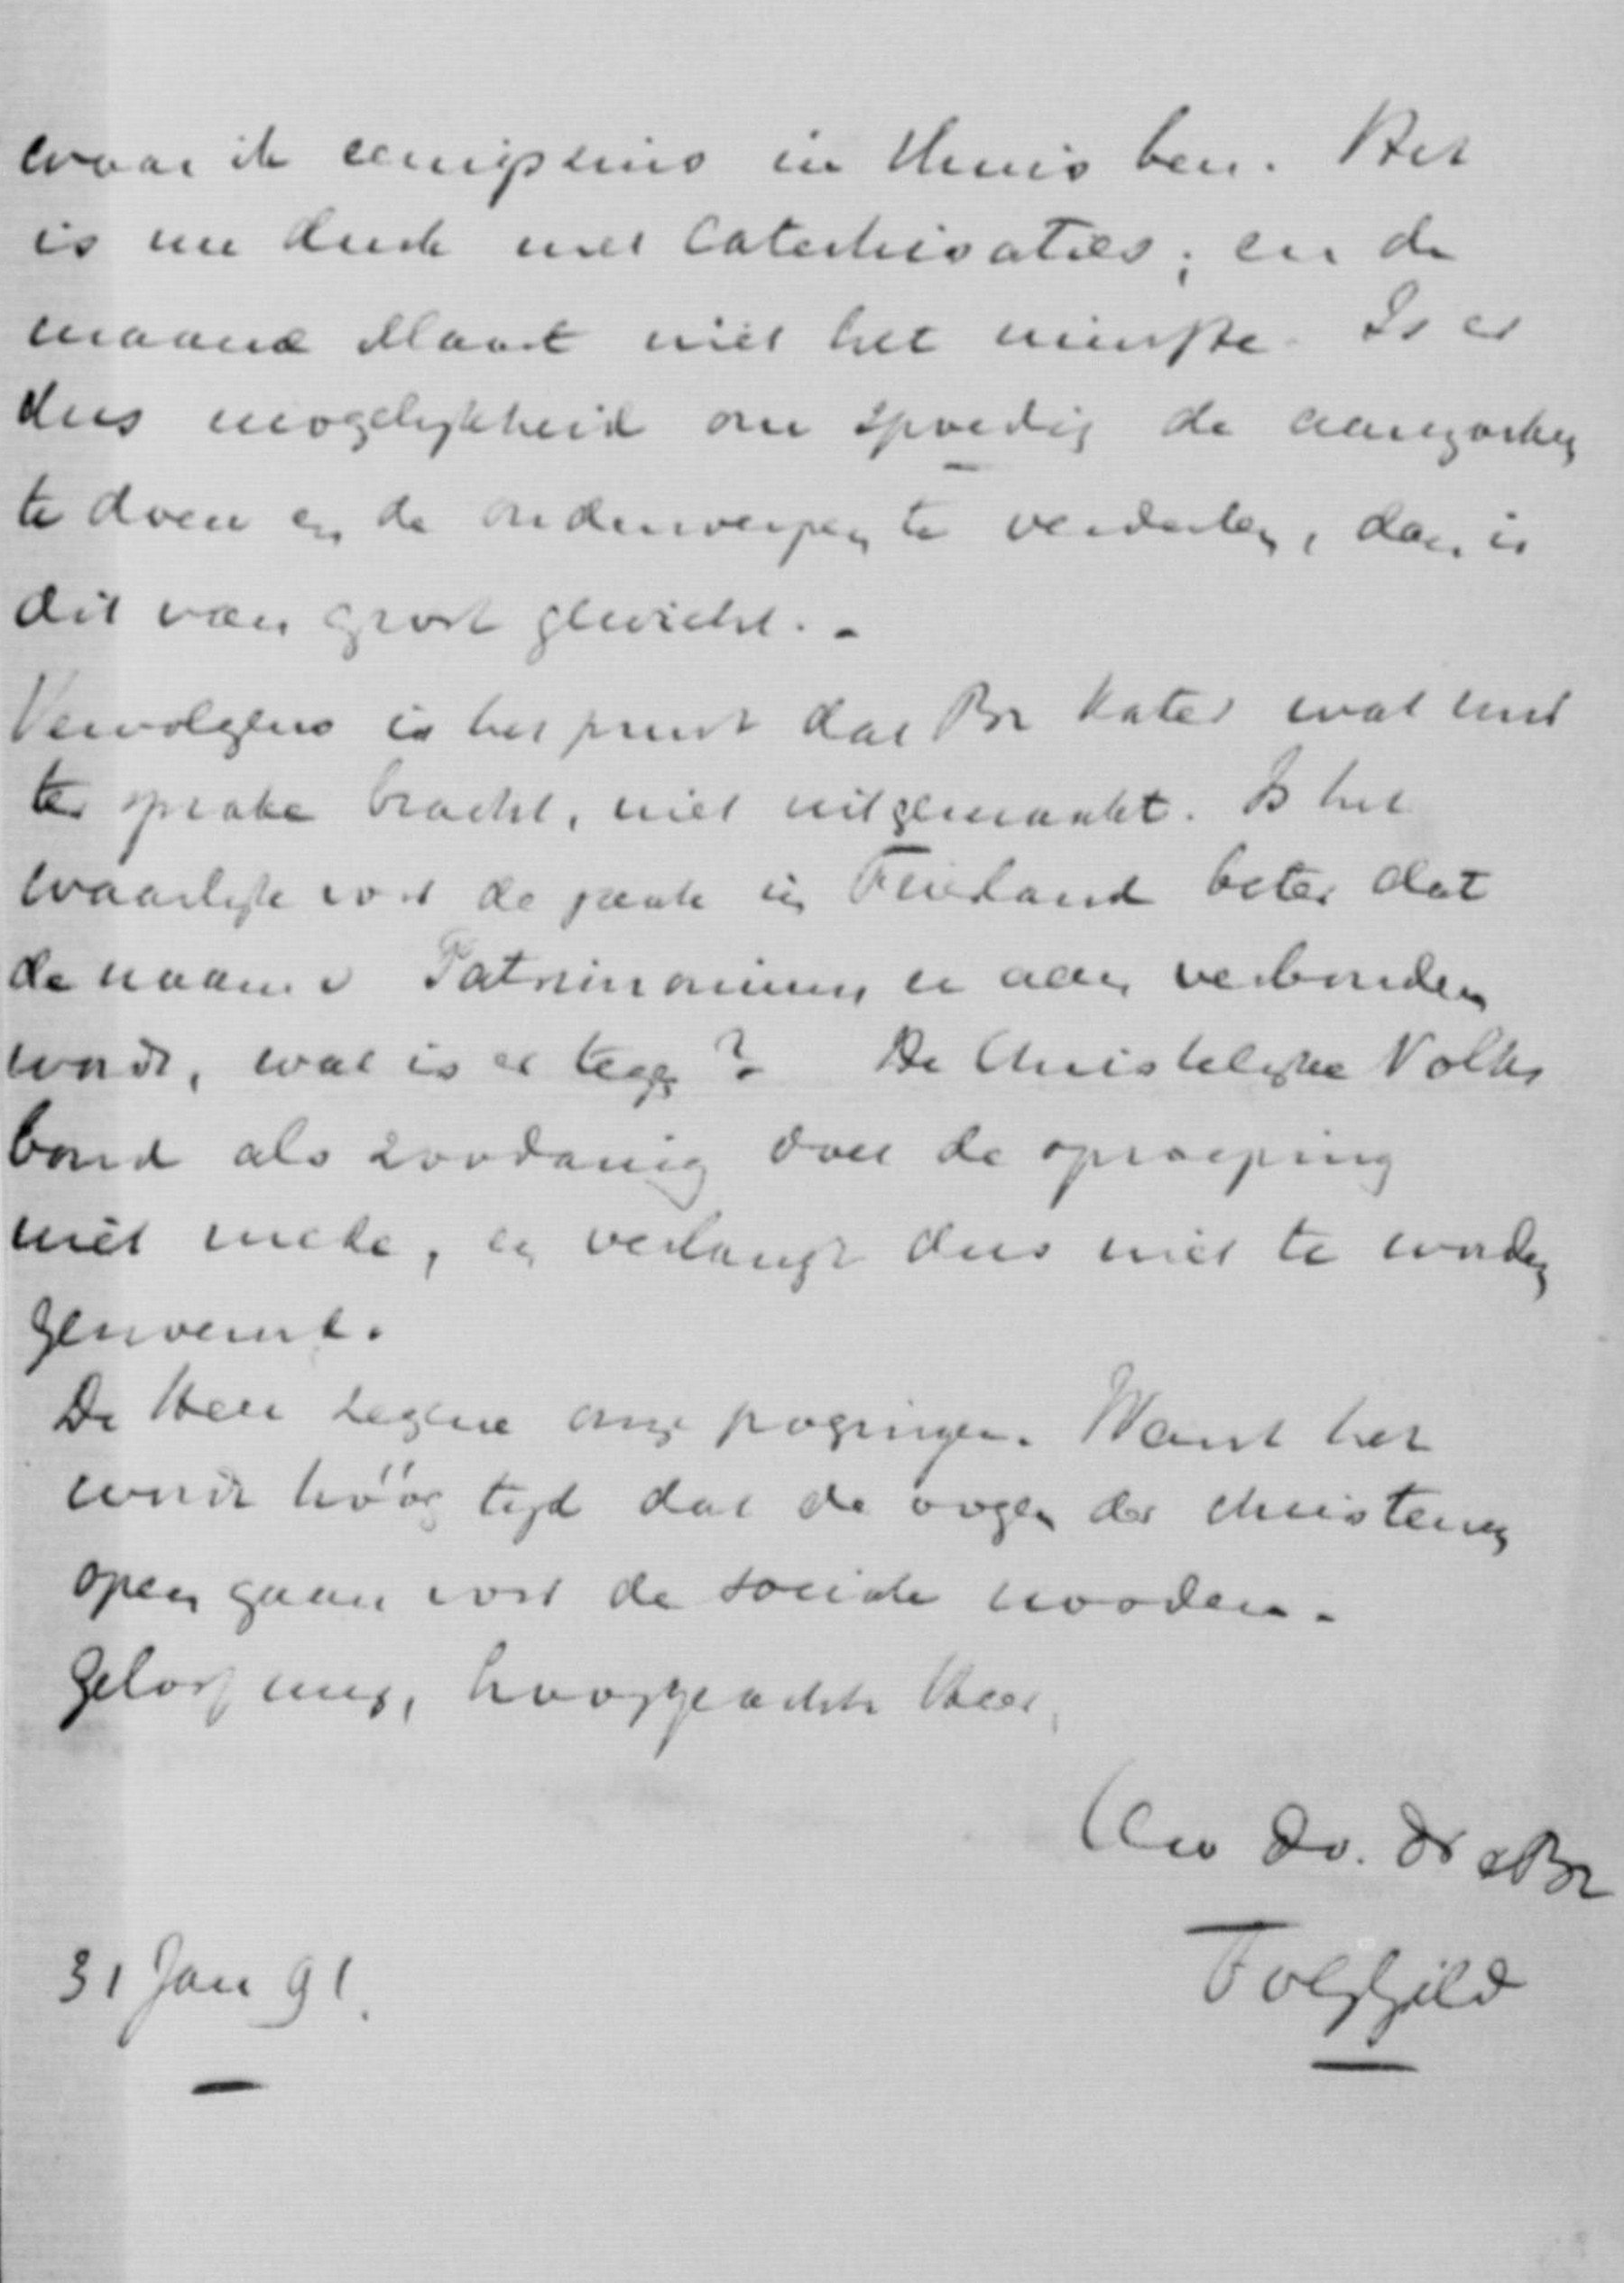 waar ik eenigszins in thuis ben. Het
is nu druk met Catechisaties; en de
maand Maart niet het minste. Is er
dus mogelijkheid om spoedig de
te doen en de onderwerpen te verdeelen, dan is
dit van groot gewicht. -
Vervolgens is het punt dat Br Kater wat
ter sprake bracht, niet uitgemaakt. Is het
waarlijk voor de zaak in Friesland beter dat
de naam v Patrimonium er aan verbonden
wordt, wat is er tegen? De Christelijke Volks
bond als zoodanig doet de oproeping
niet mede, en verlangt dus niet te worden
genoemd.
De Heer zegene onze pogingen. Want het
wordt hóóg tijd dat de oogen der christenen
open gaan voor de sociale nooden.
Geloof mij, hooggeachte Heer,
Uw dv. dr & Br
31 Jan 91.